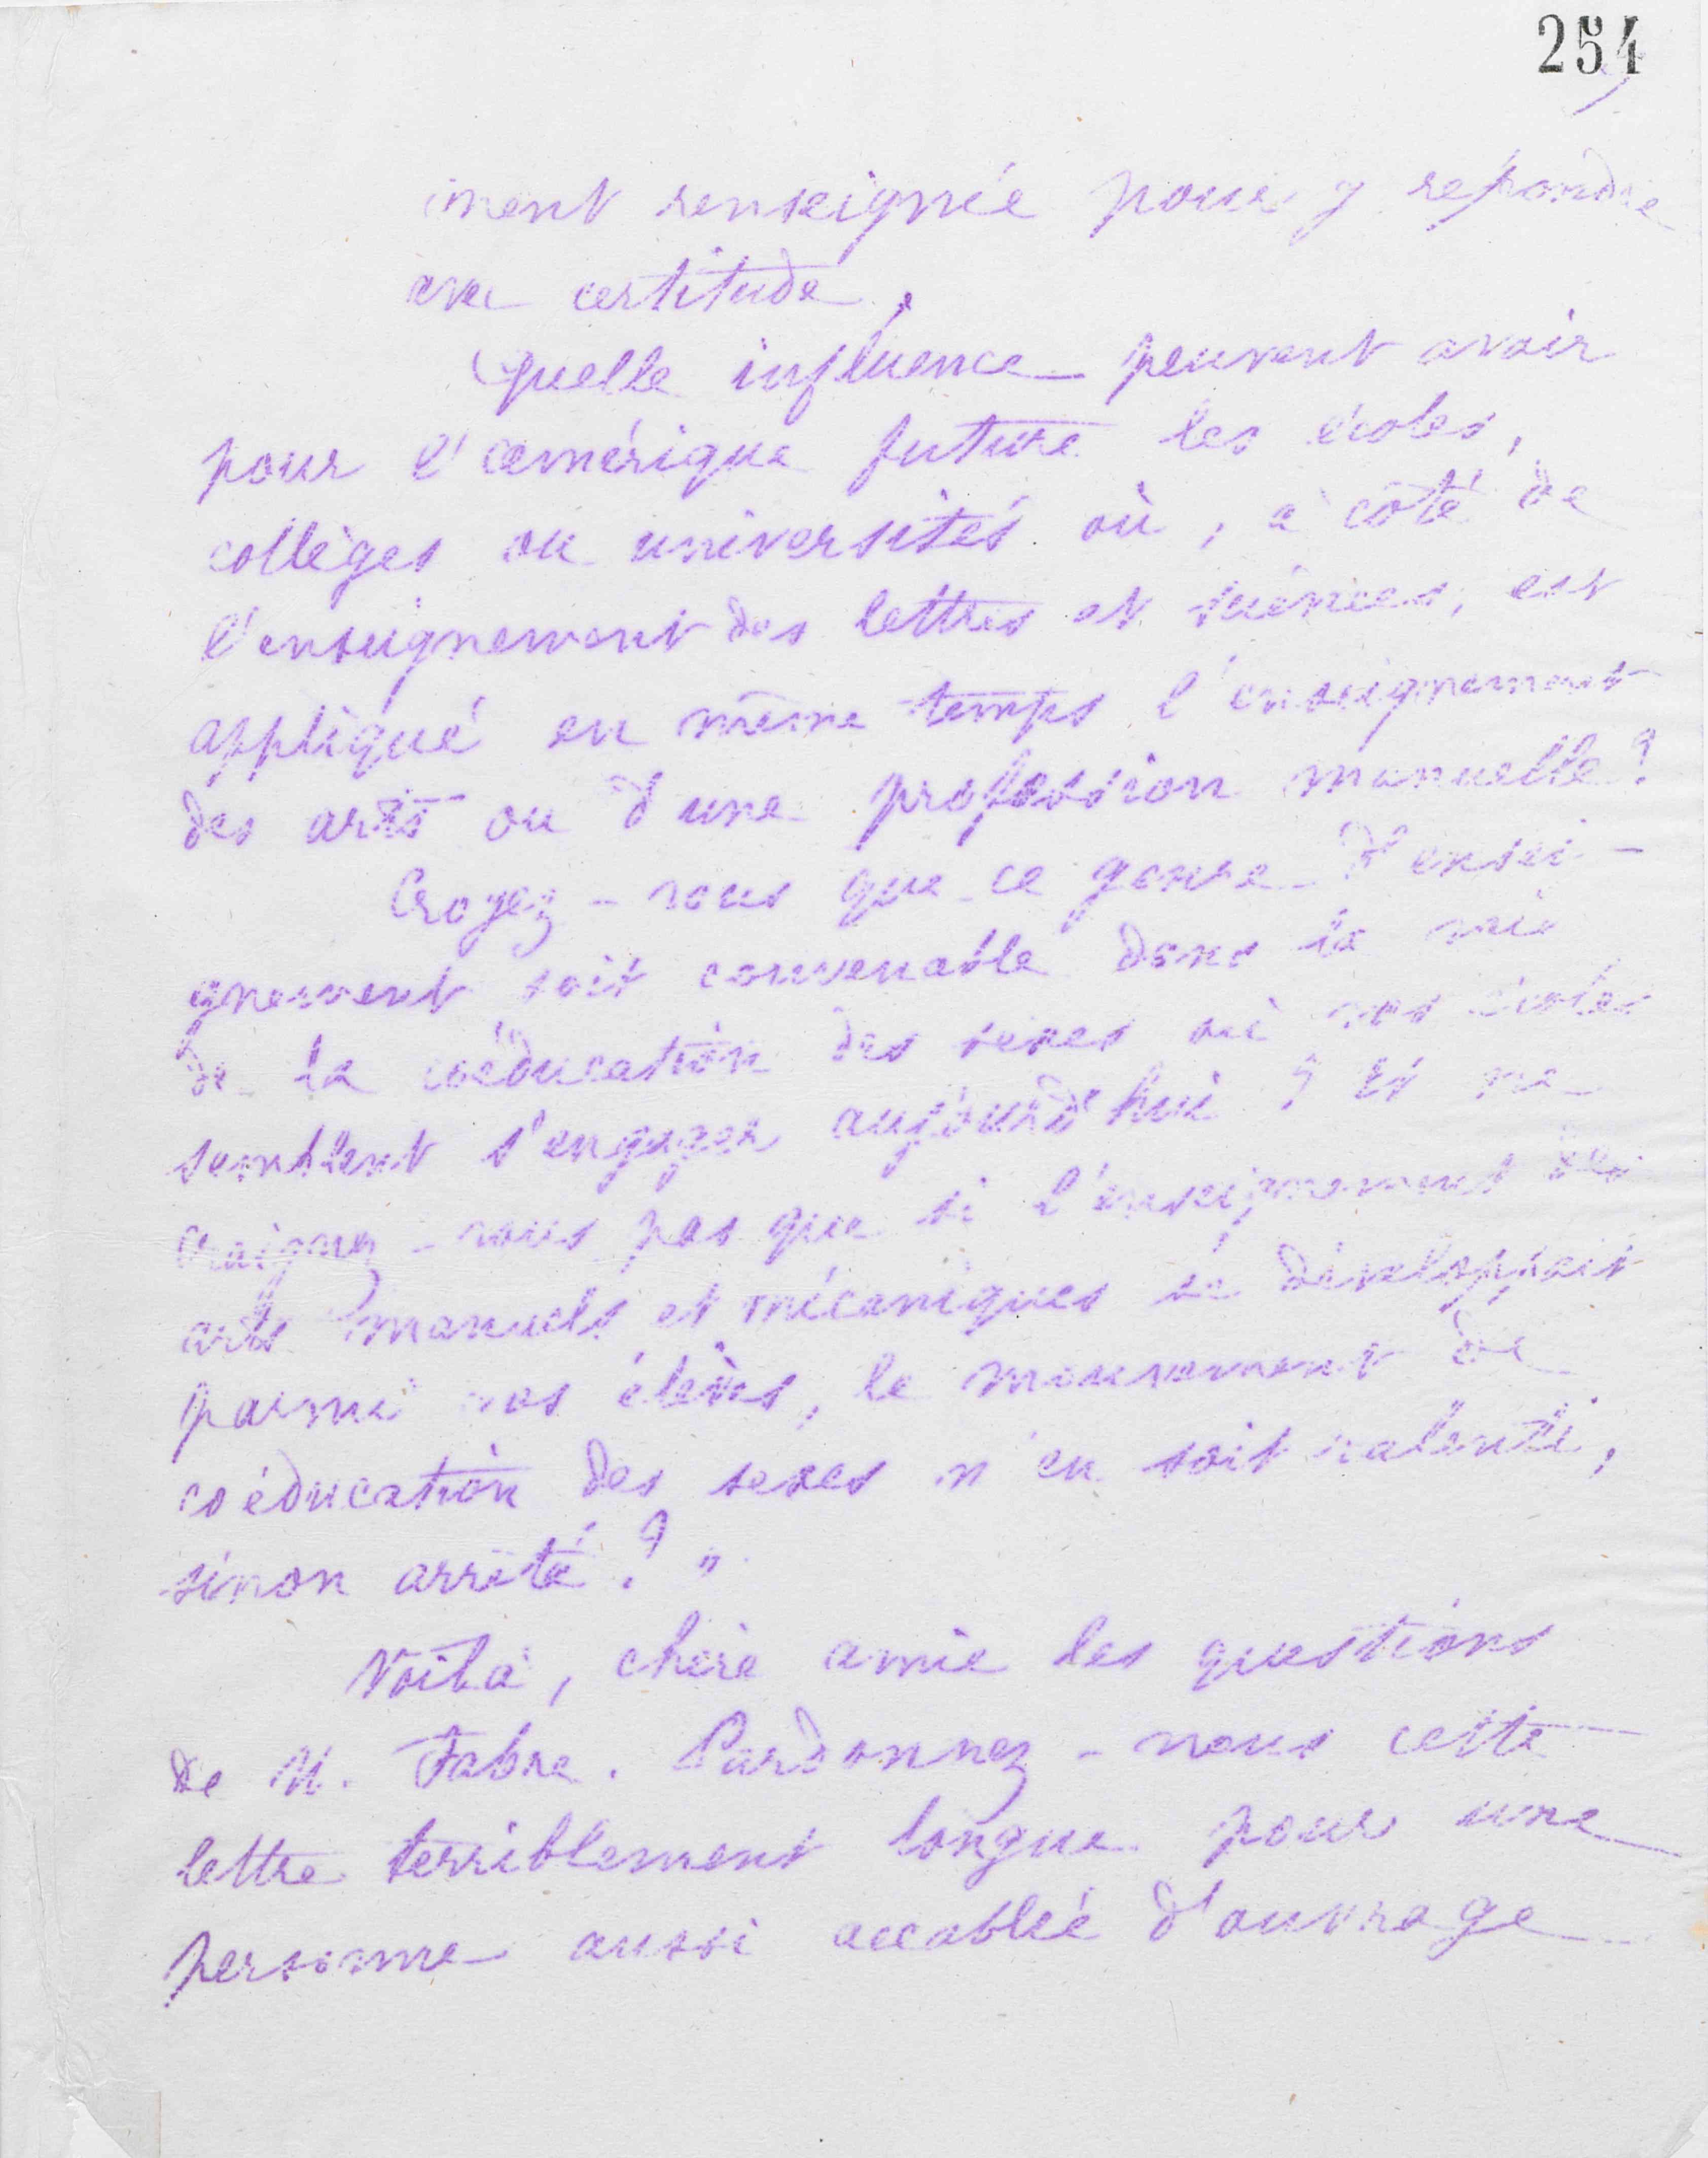 254
ment renseignée pour y répondre
avec certitude.
Quelle influence peuvent avoir
pour l'amérique future les écoles,
collèges ou universités où, à côté de
l'enseignement des lettres et sciences, est
appliqué en même temps l'enseignement
des arts ou d'une profession manuelle?
Croyez-vous que ce genre d'ensei-
gnement soit convenable dans la voie
de la coéducation des sexes où vos écoles
semblent s'engager aujourd'hui? Et ne
craignez-vous pas que si l'enseignement des
arts manuels et mécaniques se développait
parmi vos élèves, le mouvement de
coéducation des sexes n'en soit ralenti,
sinon arrêté? "
Voilà, chère amie les questions
de M. Fabre. Pardonnez-nous cette
lettre terriblement longue pour une
personne aussi accablée d'ouvrage